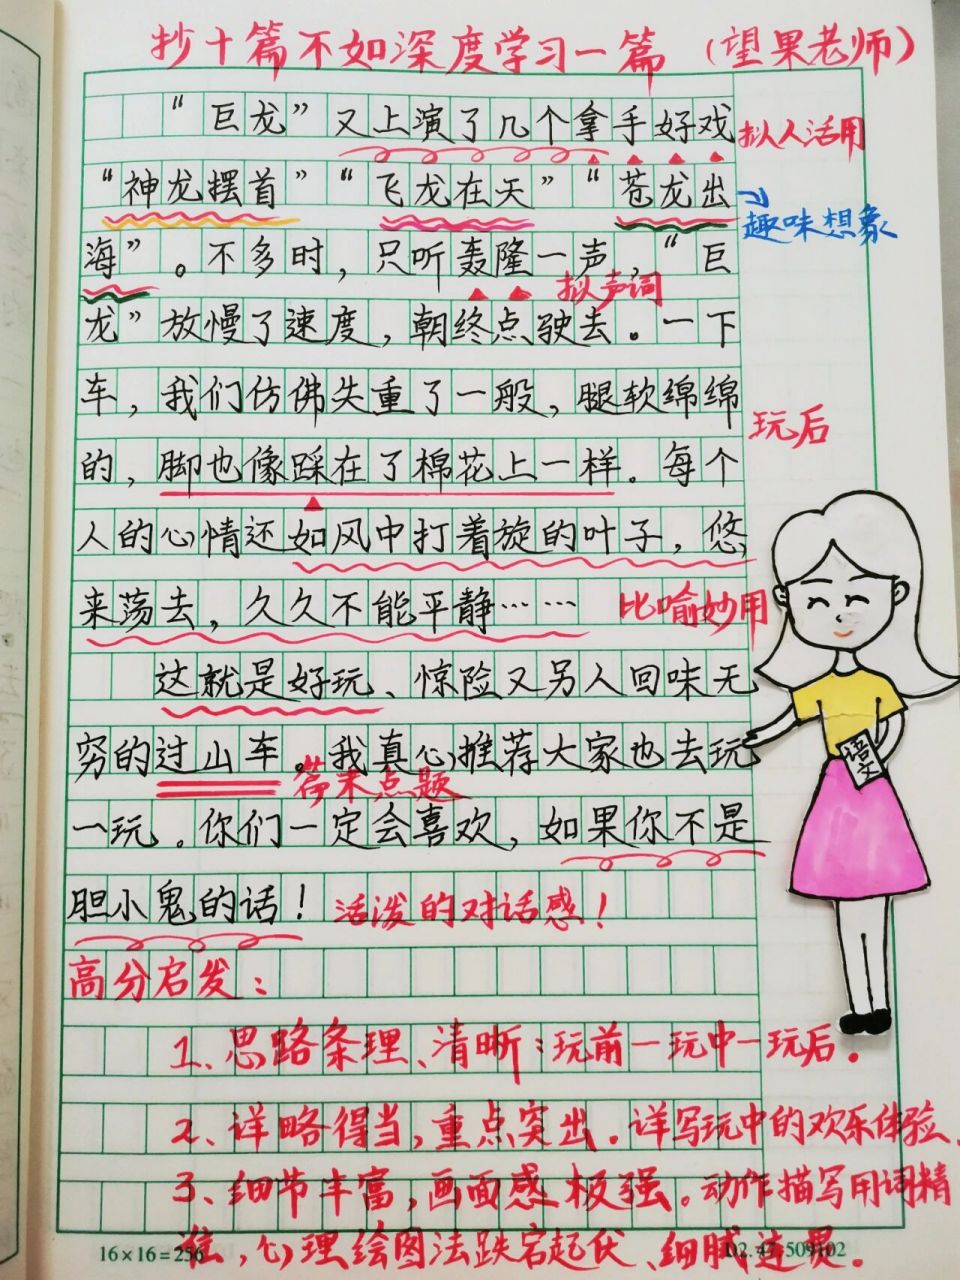 抄十篇不如深度学习一篇(望果老师)
“巨龙”又上演了几个拿手好戏
拟人活用
“神龙摆首”“飞龙在天”“苍龙出
趣味想象
海”。不多时，只听轰隆一声，“巨
拟声词
龙”放慢了速度，朝终点驶去。一下
车，我们仿佛失重了一般，腿软绵绵
玩后
的，脚也像踩在了棉花上一样。每个
人的心情还如风中打着旋的叶子，悠
来荡去，久久不能平静……
比喻妙用
这就是好玩、惊险又另人回味无
穷的过山车。我真心推荐大家也去玩
篇末点题
语文
一玩。你们一定会喜欢，如果你不是
胆小鬼的话！活泼的对话感！
高分启发：
1、思路条理、清晰：玩前一玩中一玩后。
2、详略得当，重点突出。详写玩中的欢乐体验、
3、细节丰富，画面感极强。动作描写用词精
准，心理绘图法跌宕起伏、细腻
16×16=256